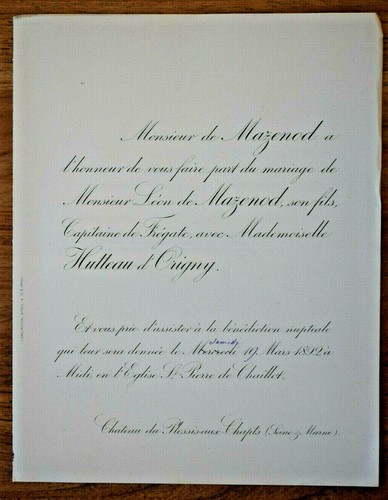 Monsieur de Mazenod a
l'honneur de vous faire part du mariage de
Monsieur Léon de Mazenod, son fils,
Capitaine de Frégate, avec Mademoiselle
Hutteau d'Origny.
Et vous prie d'assister à la bénédiction nuptiale
Samedi
qui leur sera donnée le Mercredi 19 Mars 1892 à
Midi, en l'Eglise St Pierre de Chaillot.
Chateau du Plessis-aux Chapts (Seine & Marne).